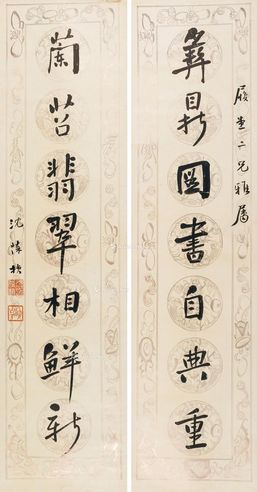 彝鼎圖書自典重
履堂二兄雅屬
蘭苕翡翠相鮮新
沈葆楨